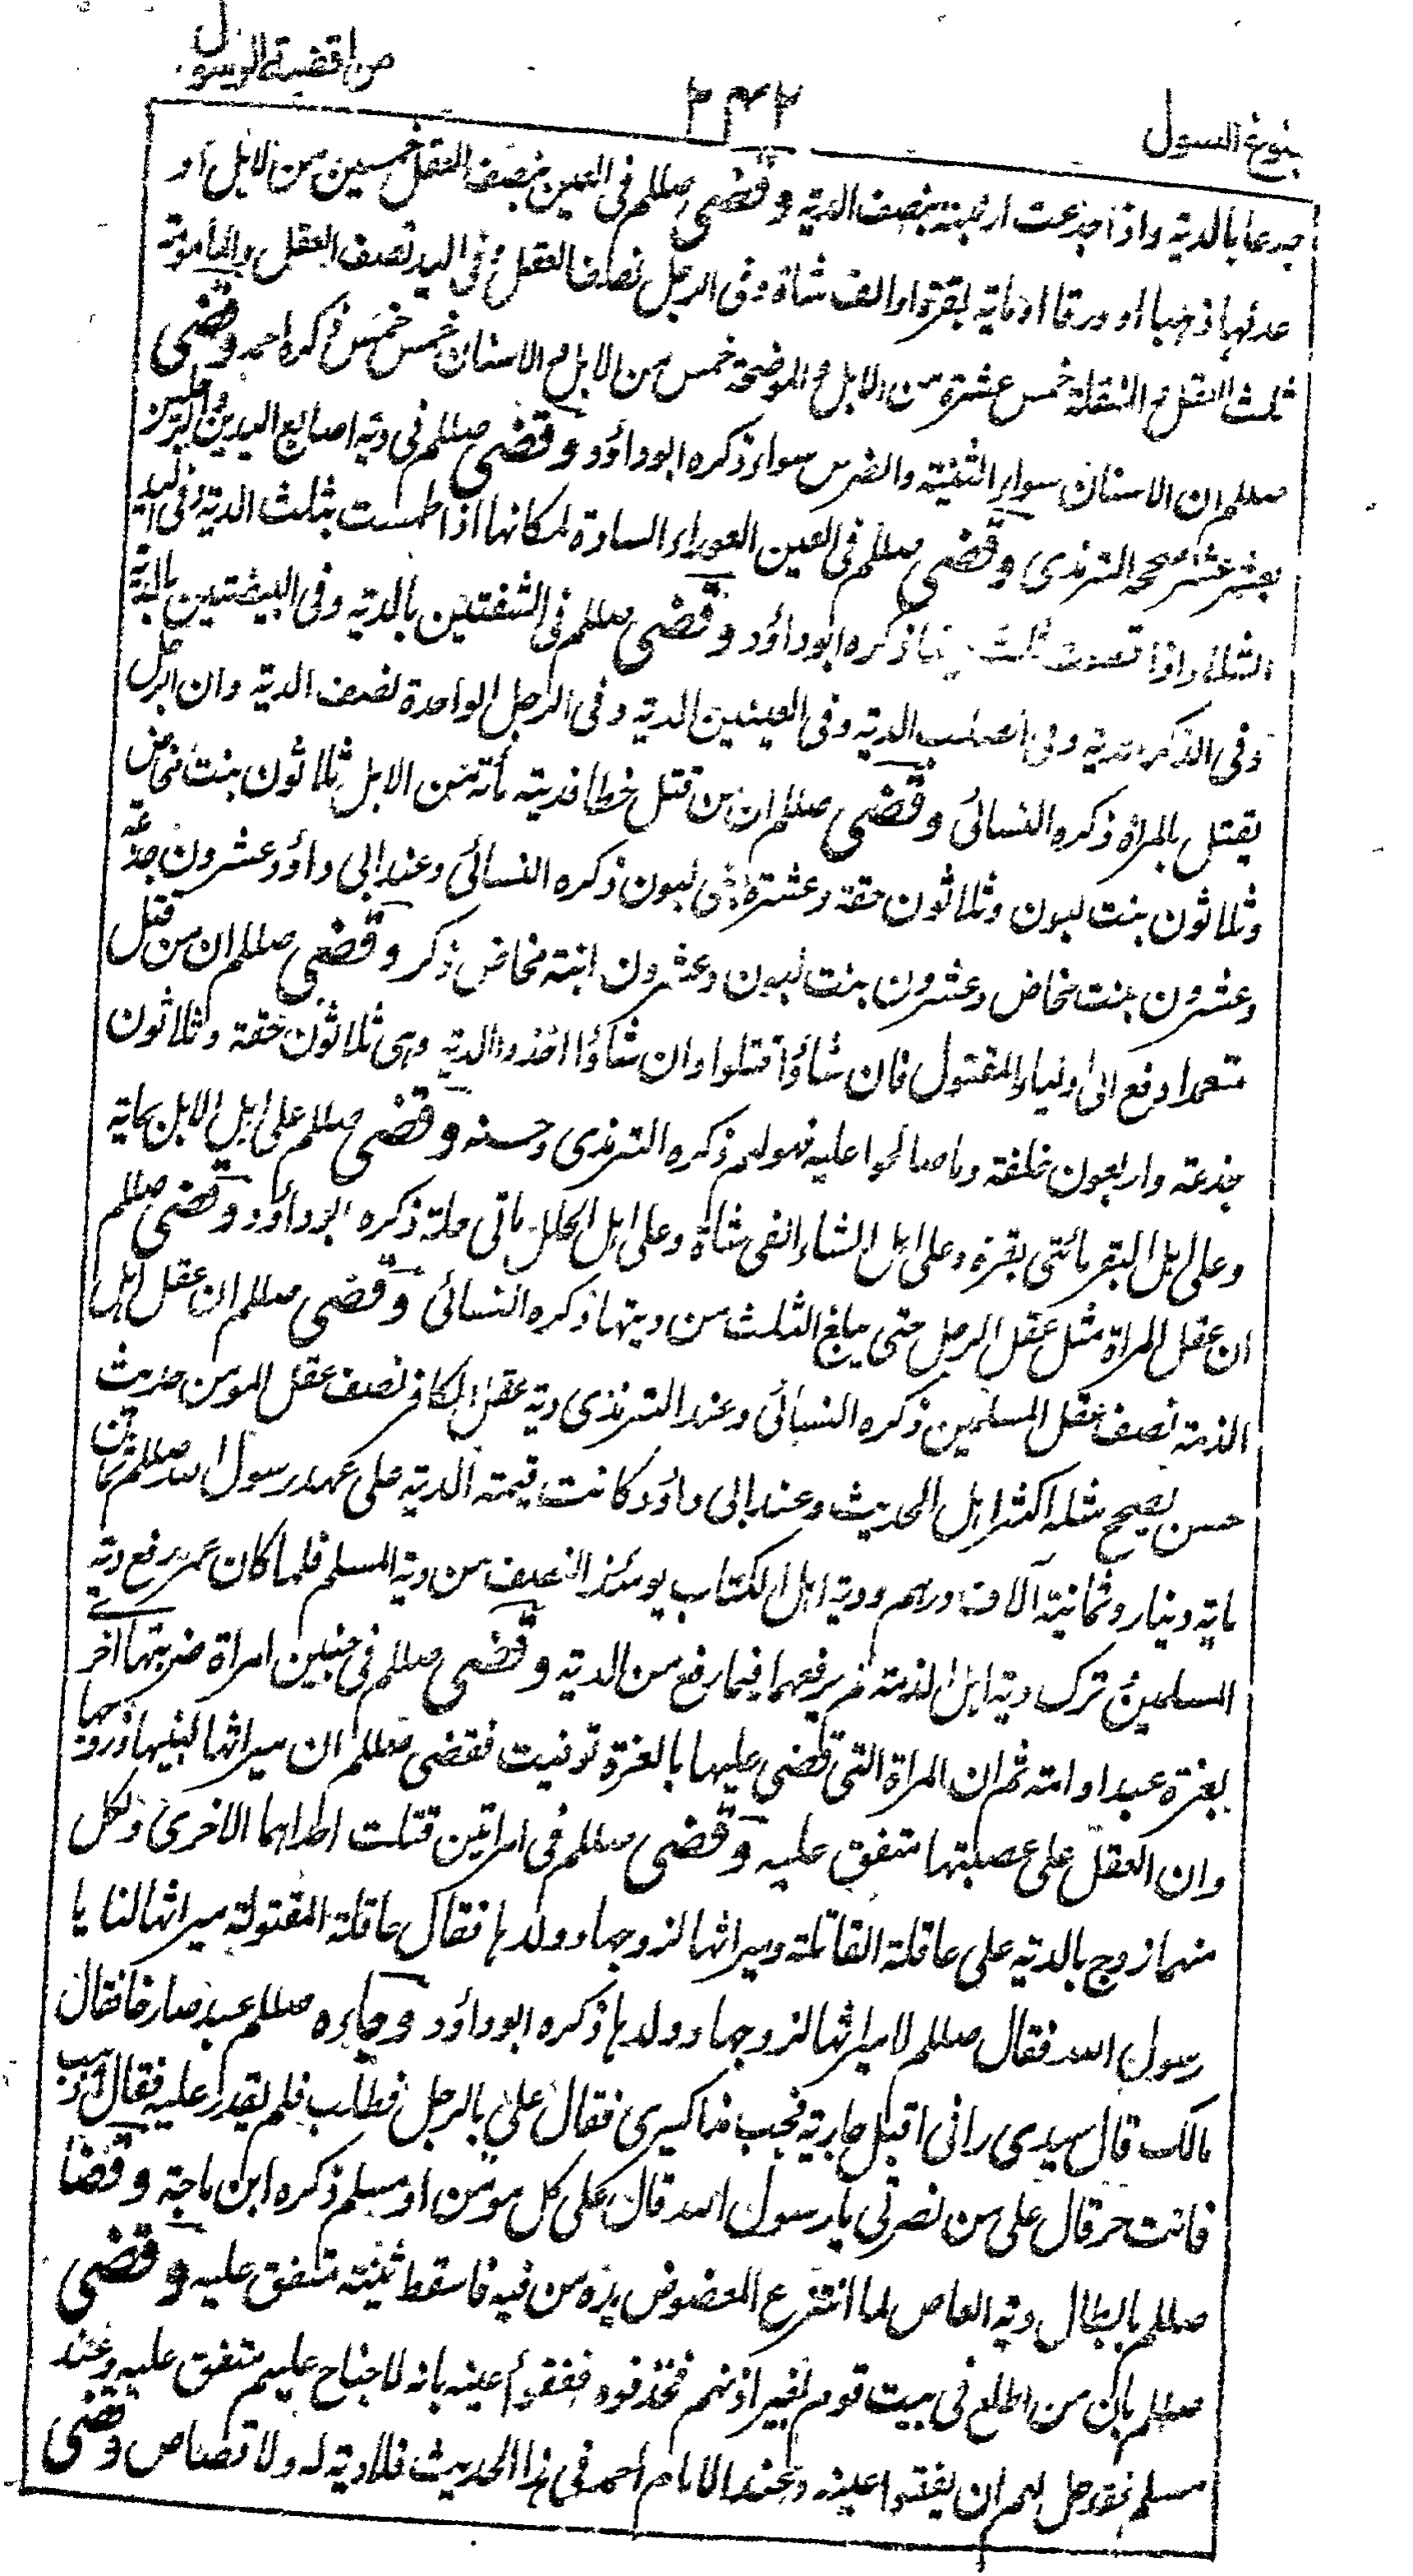 بلوغ السول
۲۴۲
من اقضية الرسول
جدعا بالدية واذا جدعت ارنبته بنصف الدية وقضى صللم فى العين بنصف العقل خمسين من الابل او
عدلها ذهبا او ورقا او مایة بقرة او الف شاة وفى الرجل نصف العقل وفى اليد نصف العقل والمأمومة
ثلث العقل والمنقلة خمس عشرة من الابل والموضحة خمس من الابل والاسنان خمس خمس ذكره احمد وقضى
صللم ان الاسنان سواء الثنية والضرس سواء ذكره ابوداؤد وقضى صللم فى دية اصابع اليدين والرجلين
بعشر عشر صححه الترمذى وقضى صللم فى العين العوراء السادة لمكانها اذا طمست بثلث الدية وفى اليد
الشلاء اذا قطعت ثلث ديتها ذكره ابوداؤد وقضى صللم فى الشفتين بالدية وفى البيضتين بالدية
وفى الذكر بالدية وفى الصلب الدية وفى العينين الدية وفى الرجل الواحدة نصف الدية وان الرجل
يقتل بالمراة ذكره النسائى وقضى صللم ان من قتل خطا فديته مأته من الابل ثلاثون بنت مخاض
وثلاثون بنت لبون وثلاثون حقة وعشرة بنى لبون ذكره النسائى وعند ابى داؤد عشرون جذعة
وعشرون بنت مخاض وعشرون بنت لبون وعشرون ابنة مخاض ذكر وقضى صللم ان من قتل
متعمدا دفع الى اولياء المقتول فان شاؤا قتلوا وان شاؤا اخذوا الدية وهى ثلاثون حقة وثلاثون
جذعة واربعون خلفة وما صالحوا عليه فهولهم ذكره الترمذى وحسنه وقضى صللم على اهل الابل بماية
وعلى اهل البقر بمائتى بقرة وعلى اهل الشاء الفى شاة وعلى اهل الحلل مأتى حلة ذكره ابوداؤد وقضى صللم
ان عقل المراة مثل عقل الرجل حتى يبلغ الثلث من ديتها ذكره النسائى وقضى صللم ان عقل اهل
الذمة نصف عقل المسلمين ذكره النسائى وعند الترمذى دية عقل الكافر نصف عقل المومن حديث
حسن يصحح مثله اكثر اهل الحديث وعند ابى داؤد كانت قيمة الدية على عهد رسول الله صللم ثمان
ماية دينار وثمانية آلاف درهم ودية اهل الكتاب يومئذ النصف من دية المسلم فلما كان عمر رفع دية
المسلمين وترك دية اهل الذمة لم يرفعها فيما رفع من الدية وقضى صللم فى جنين امراة ضربتها اخرى
بغرة عبد او امة ثم ان المراة التى قضى عليها بالغرة توفيت فقضى صللم ان ميراثها لبنيها وزوجها
وان العقل على عصبتها متفق عليه وقضى صللم فى امراتين قتلت احداهما الاخرى ولكل
منهما زوج بالدية على عاقلة القاتلة وميراثها لزوجها وولدها فقال عاقلة المقتولة ميراثها لنا يا
رسول الله فقال صللم لا ميراثها لزوجها وولدها ذكره ابوداؤد وجاءه صللم عبد صارخا فقال
مالك قال سيدى رانى اقبل جارية فجب مذاكيرى فقال على بالرجل فطلب فلم يقدر عليه فقال اذهب
فانت حر قال على من نصرتى يا رسول الله قال على كل مومن او مسلم ذكره ابن ماجة وقضا
صللم بابطال دية العاص لما انتزع المعضوض يده من فيه فاسقط ثنيته متفق عليه وقضى
صللم بان من اطلع فى بيت قوم بغير اذنهم فخذفوه ففقؤا عينه بانه لا جناح عليهم متفق عليه وعند
مسلم فقد حل لهم ان يفقؤا عينه وعند الامام احمد فى هذا الحديث فلا دية له ولا قصاص وقضى